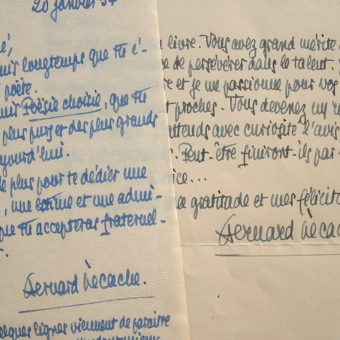 20 janvier 54
é,
uis longtemps que tu é-
poète.
uis Poésie choisie, que tu
plus purs et des plus grands
ujourd'hui.
e plus pour te dédier une
, une estime et une admi-
que tu accepteras fraternel-
.
Bernard Lecache.
elques lignes viennent de paraître
livre. Vous avez grand mérite
de persévérer dans le talent.
re et je me passionne pour vos
proches. Vous devenez un
ttends avec curiosité l'avis
. Peut-être finiront-ils par
ice...
a gratitude et mes félicit
Bernard Lecac